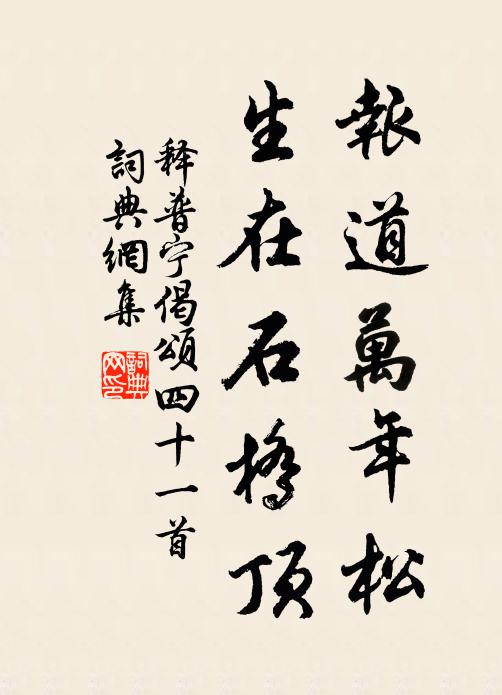 報道萬年松
生在石橋頂
释普宁偈頌四十一首
詞典網集
詞典网印